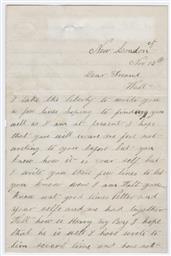 New London
Nov 15th
Dear Friend
Well
I take the liberty to write you
a few lines hoping to find you
well as I am at present I hope
that you will excuse me for not
writing to your before but you
know how it is your self but
I write you these few lines to let
you know how I am that's give
know what good times Potter and
your selfe and me had together
that how is Henry my Boy I hope
that he is well I have wrote to
him several times and has not